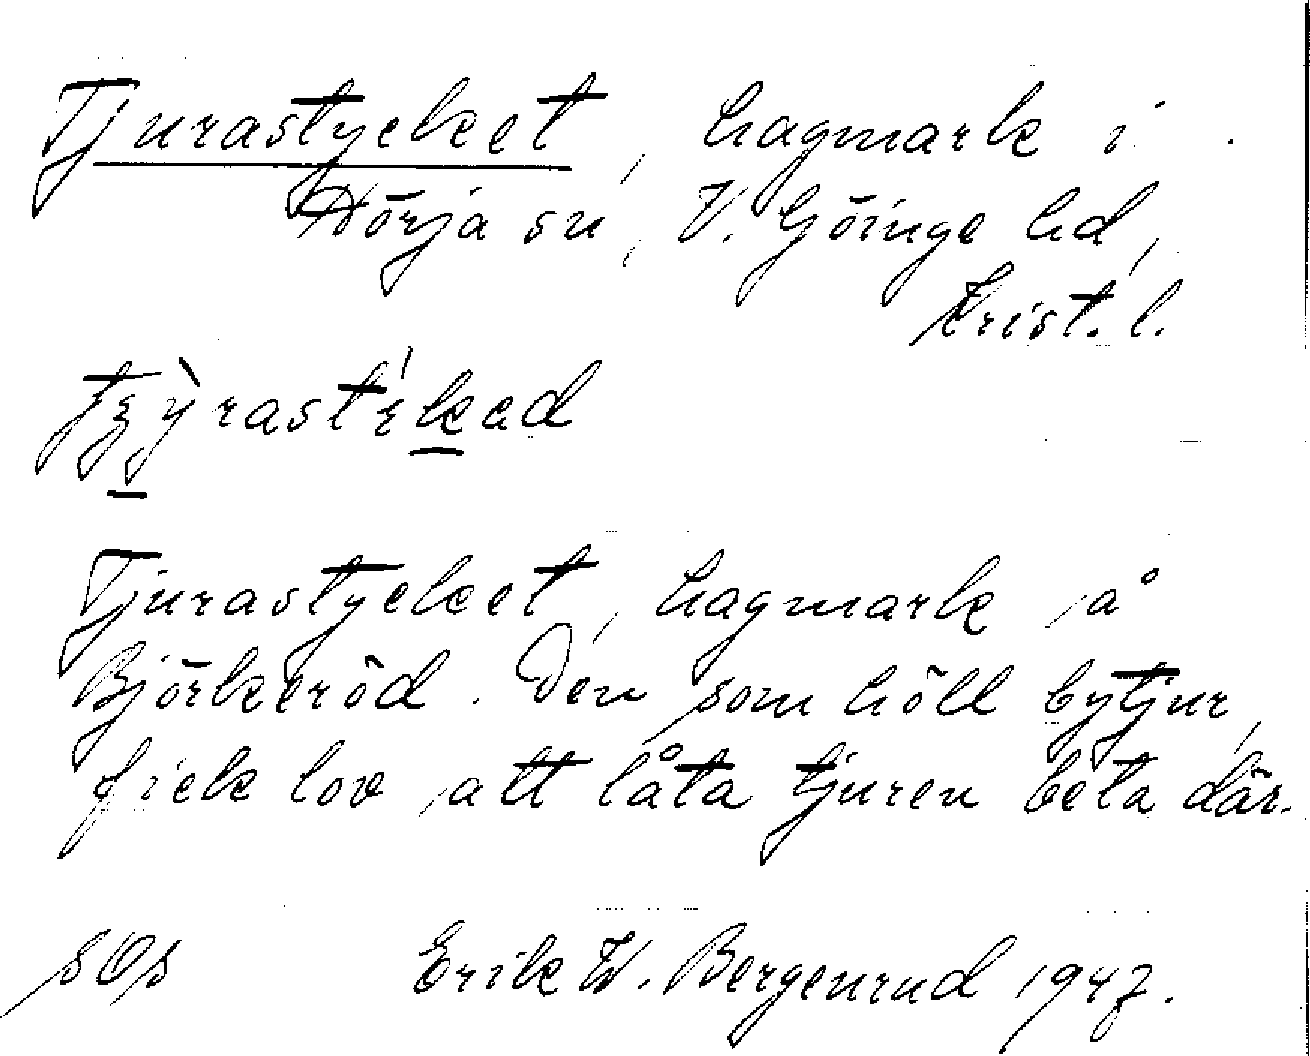 Tjurastycket, hagmark i
Hörja sn, V. Göinge hd,
Krist. l.
Tjurastycket, hagmark å
Björkeröd. Den som höll bytjur,
fick lov att låta tjuren beta där.
Erik W. Bergenrud 1947.